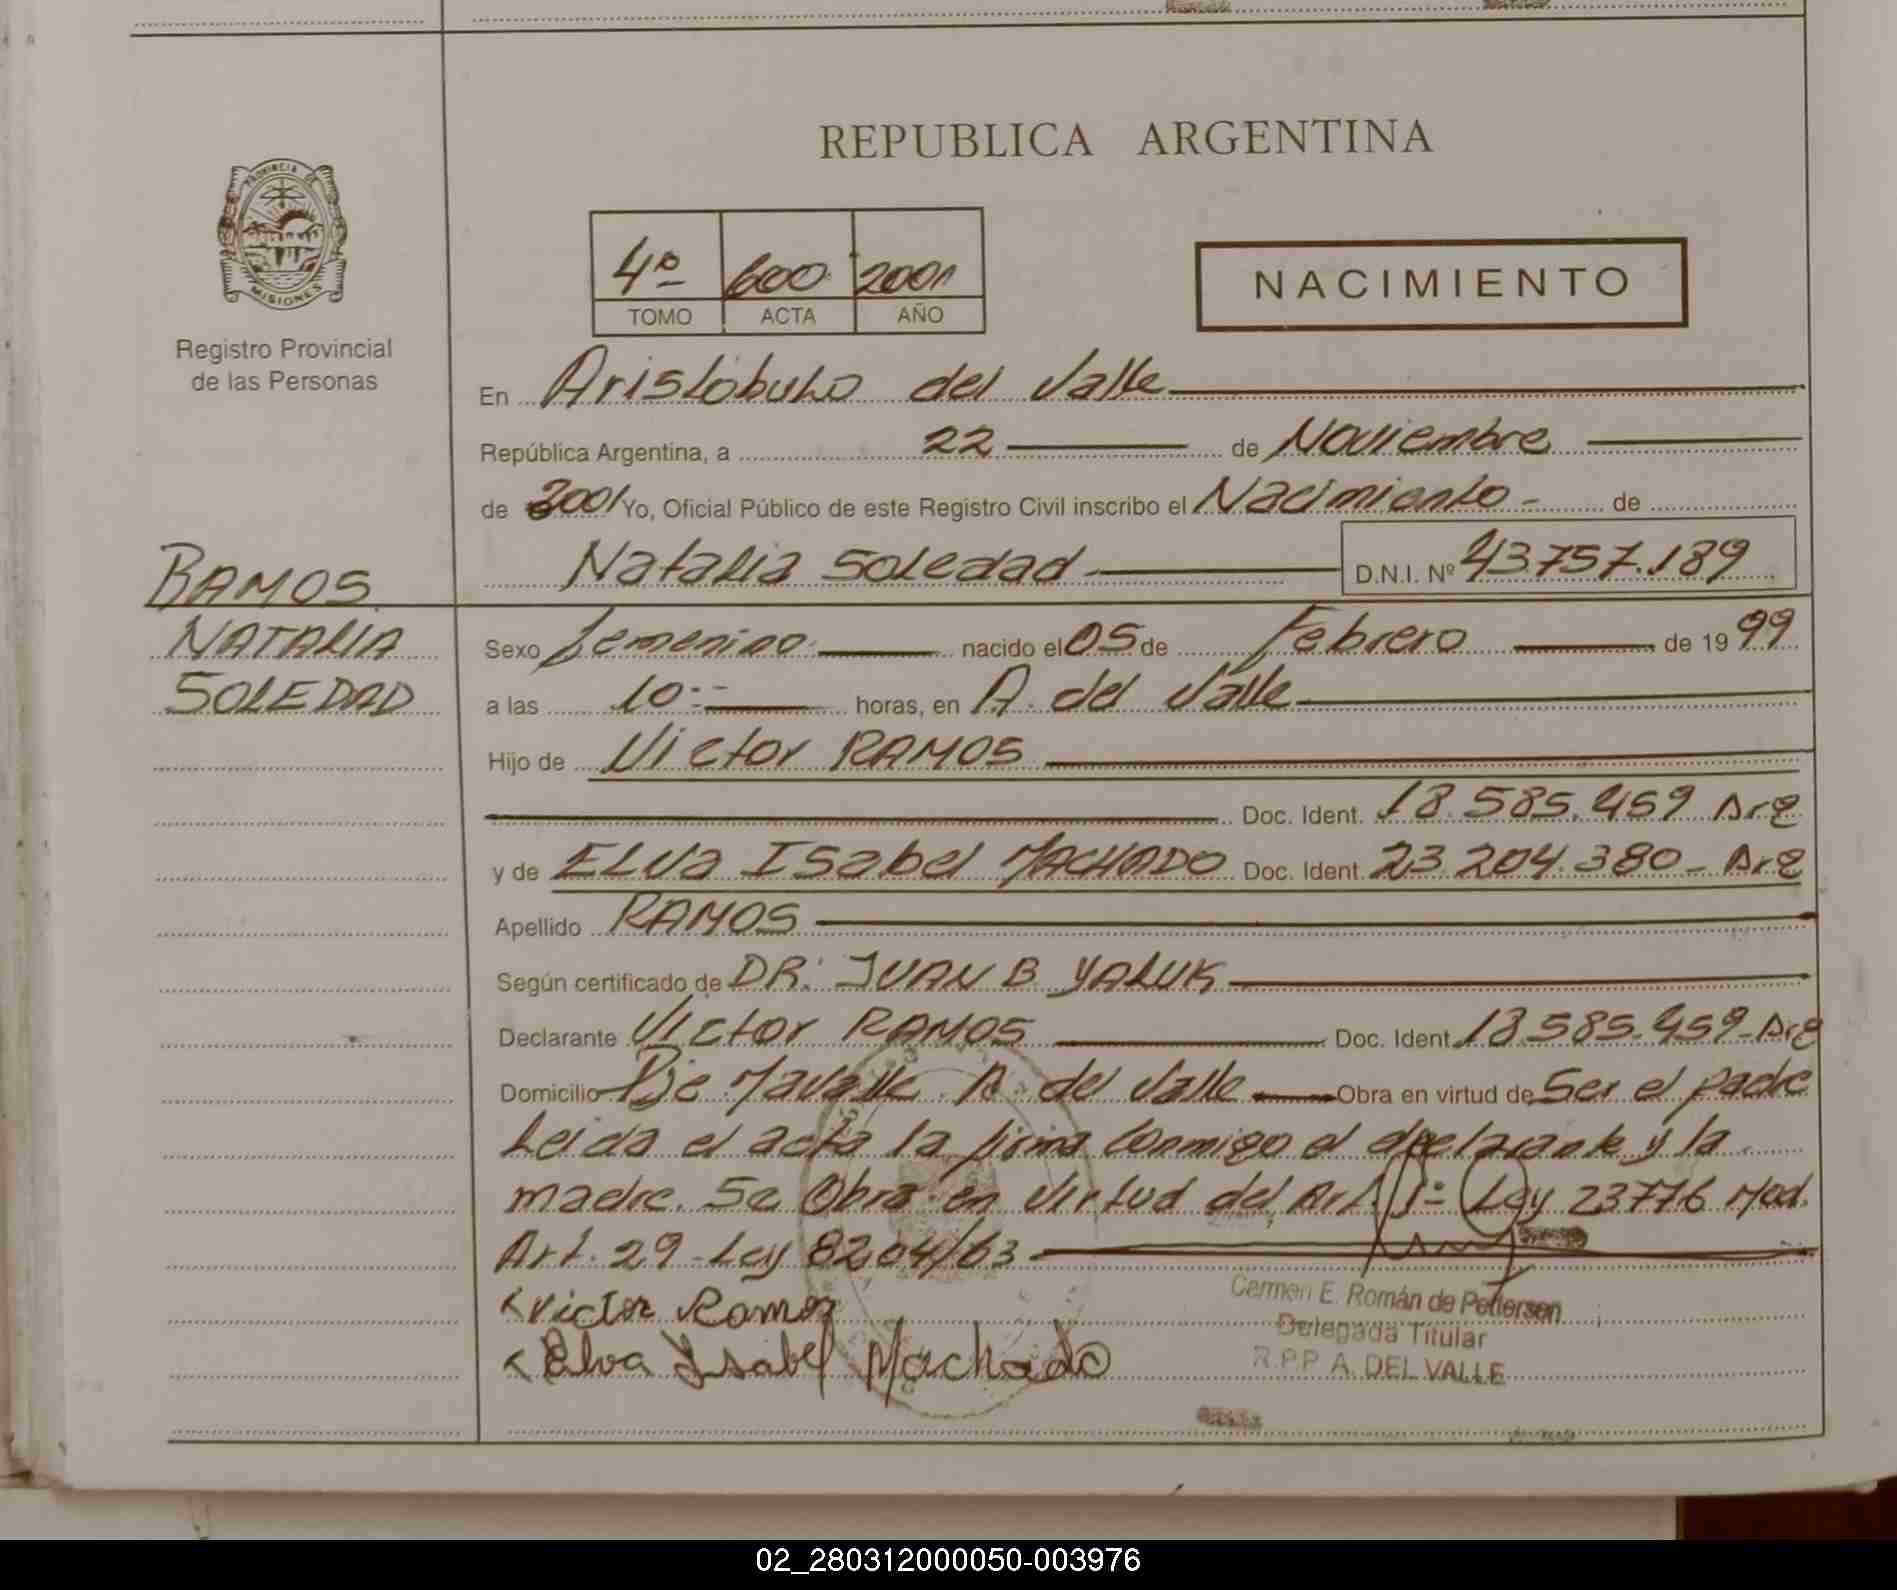 REPUBLICA ARGENTINA
PROVINCIA DE
MISIONES
4º 600 2001
TOMO ACTA AÑO
NACIMIENTO
Registro Provincial
de las Personas
En Aristobulo del Valle
República Argentina, a 22 de Noviembre
de 2001 Yo, Oficial Público de este Registro Civil inscribo el Nacimiento - de
Natalia Soledad D.N.I. Nº 43.757.189
RAMOS
NATALIA
SOLEDAD
Sexo femenino nacido el 05 de Febrero de 1999
a las 10:-- horas, en A. del Valle
Hijo de Victor RAMOS
Doc. Ident. 18.585.459 Arg
y de ELVA ISabel MACHADO Doc. Ident. 23.204.380 - Arg
Apellido RAMOS
Según certificado de DR: JUAN B. YALUK
Declarante Victor RAMOS Doc. Ident. 18.585.459 - Arg
Domicilio Pje A. del Valle Obra en virtud de Ser el padre
Leida el acta la firma conmigo el y la
madre. Se Obra en virtud del Art. 1º Ley 23776 Mod.
Art. 29 - Ley 8204/63
Victor Ramos
Elva Ysabel Machado
Carmen E. Román de Pettersen
Delegada Titular
R.P.P. A. DEL VALLE
02_280312000050-003976